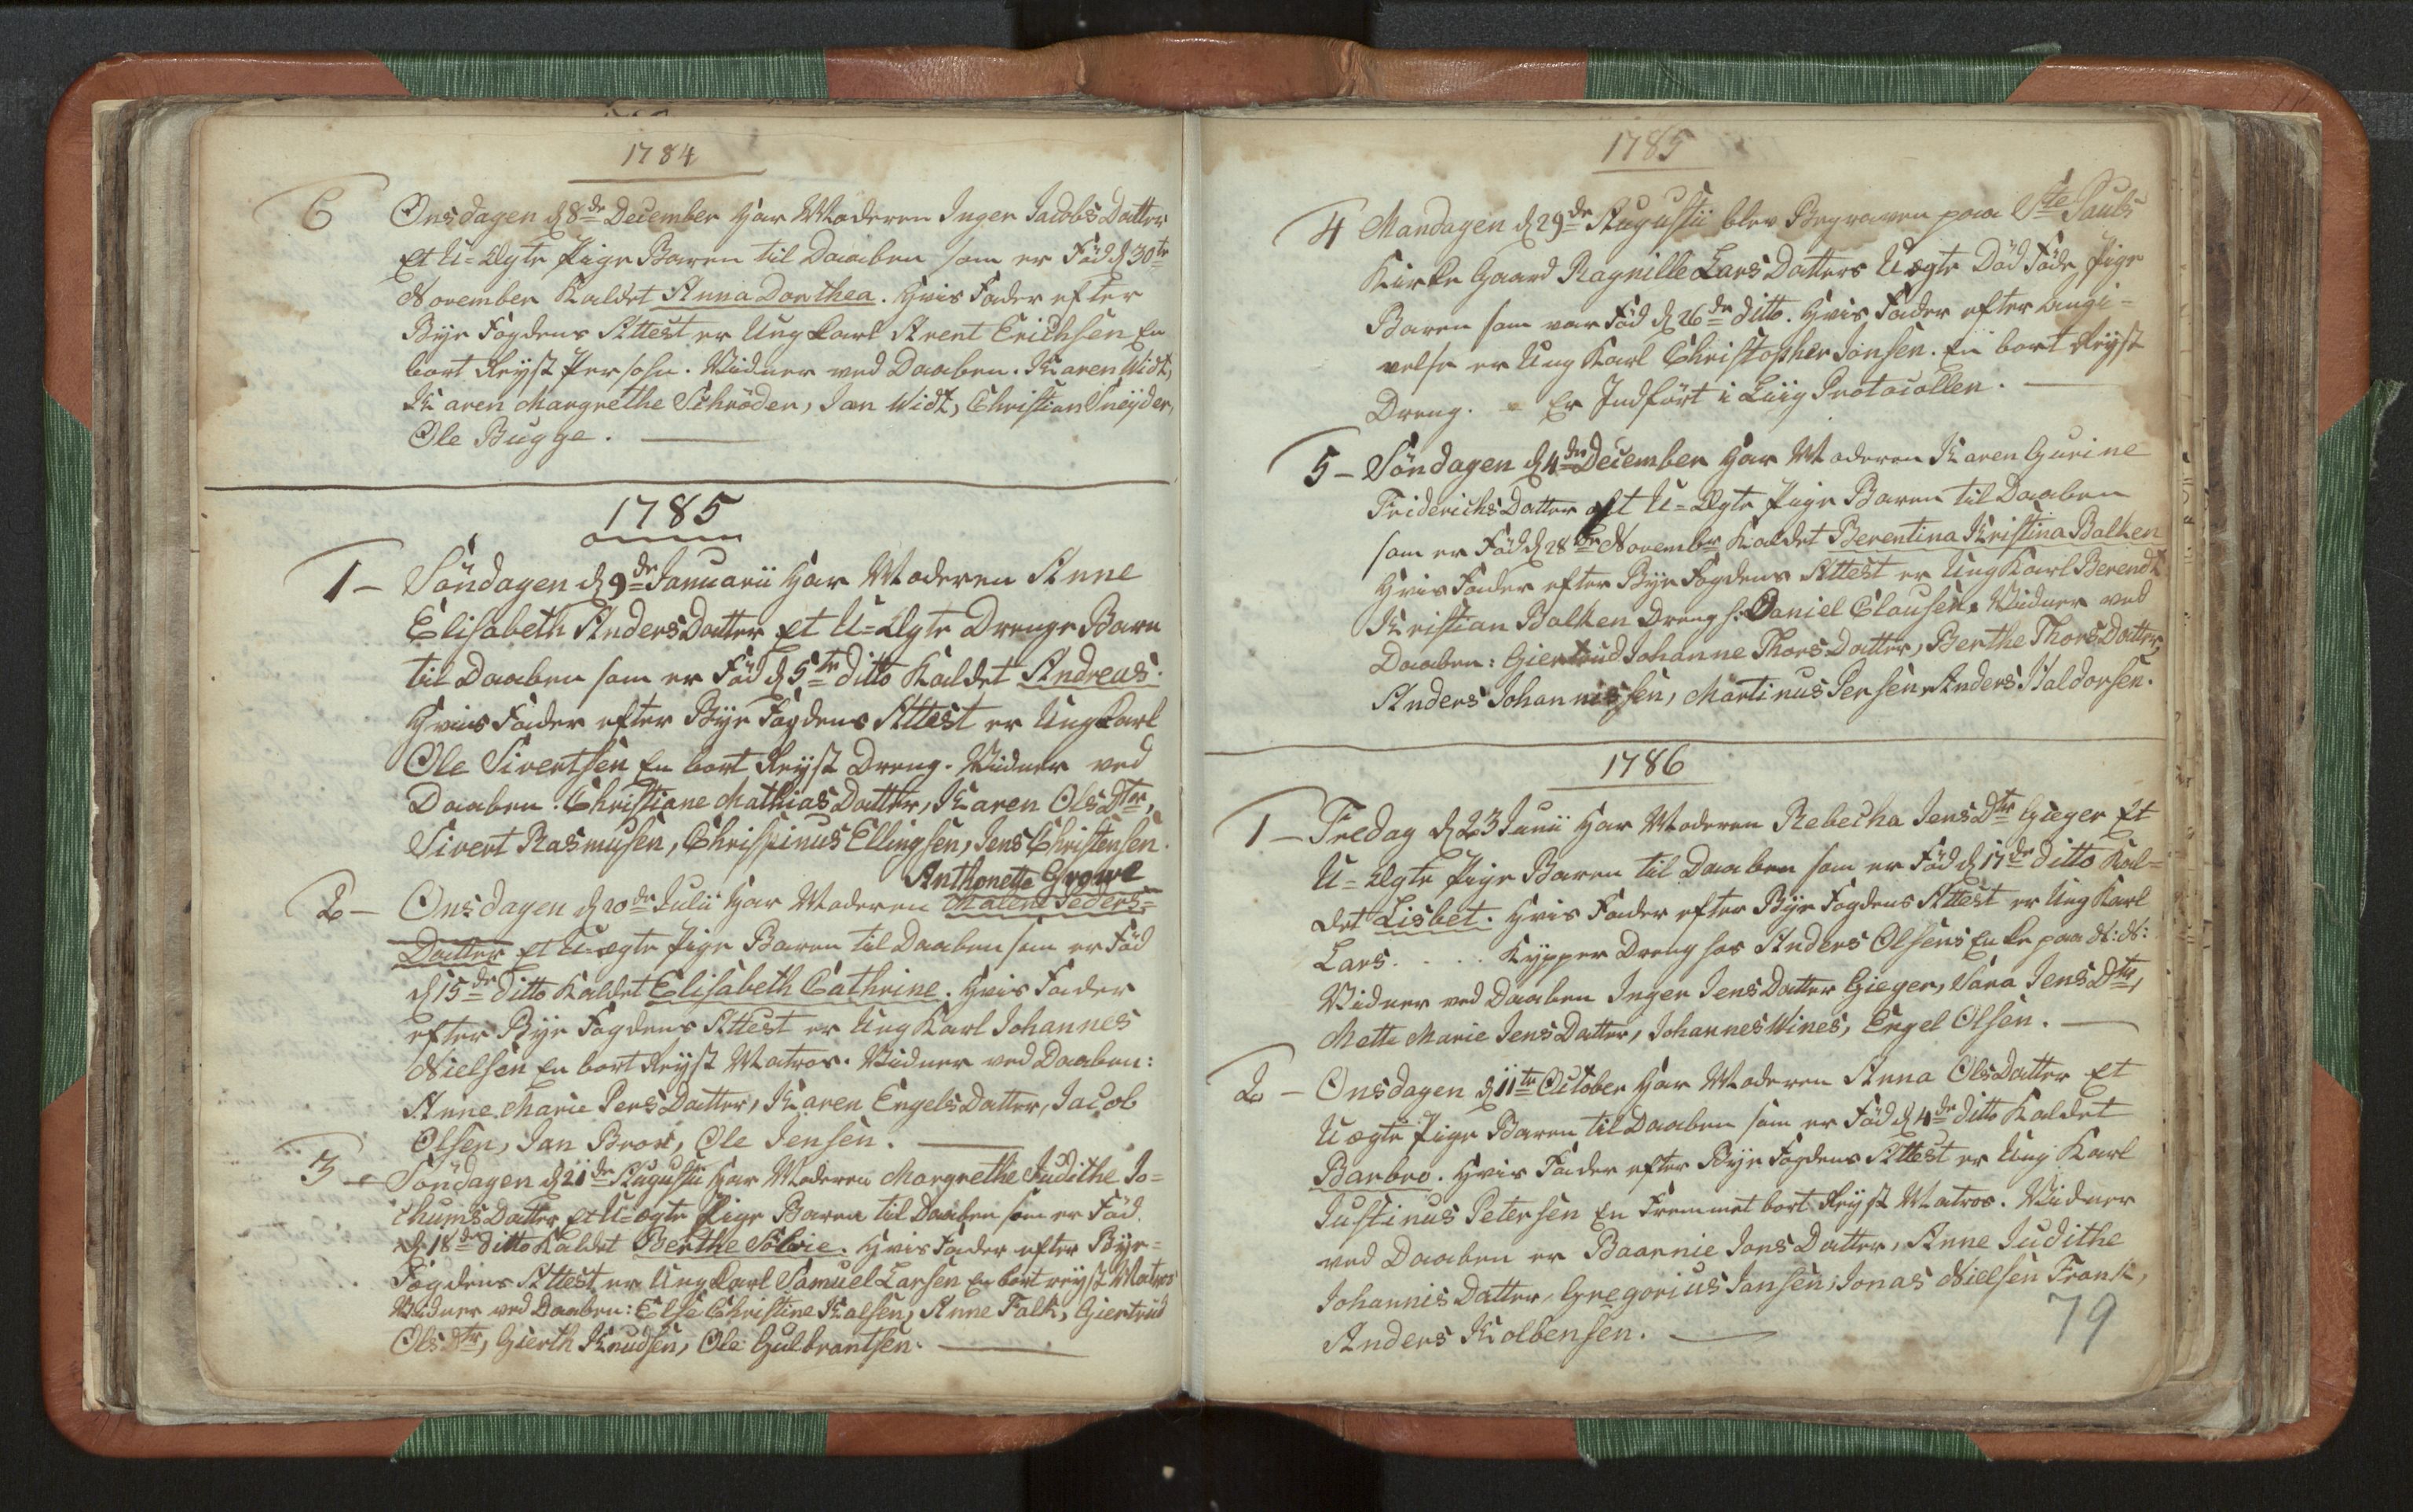 1784
6 Onsdagen d 8de December har Moderen Inger Jacobs Datter
Et U=Ægte Pige Baren til Daaben som er Fød d 30te
November Kaldet Anna Dorthea. Hvis Fader efter
Bye Fogdens Attest er Ung karl Arent Erichsen En
bort Reyst Persohn. Vidner ved Daaben. Karen Widt,
Karen Margrethe Schrøder, Jan Widt, Christian Sneyder,
Ole Bugge.
1785
1 - Søndagen d 9de Januarii har Moderen Anne
Elisabeth Anders Datter Et U=Ægte Drenge Barn
til Daaben som er Fød d 5te ditto Kaldet Andreas.
Hvis Fader efter Bye Fogdens Attest er Ung karl
Ole Sivertsen En bort Reyst Dreng. Vidner ved
Daaben. Christiane Mathias Datter, Karen Ols Dtr,
Sivert Rasmusen, Christinus Ellingsen, Jens Christensen.
Anthonette Growe
2 - Onsdagen d 20de Julii har Moderen Malene Peders=
Datter Et U=ægte Pige Baren til Daaben som er Fød
d 15de ditto Kaldet Elisabeth Cathrine. Hvis Fader
efter Bye Fogdens Attest er Ung Karl Johannes
Nielsen En bort Reyst Matros. Vidner ved Daaben:
Anne Marie Pers Datter, Karen Engels Datter, Jacob
Olsen, Jan Bror, Ole Jensen.
3 - Søndagen d 21de Augustii har Moderen Margrethe Judithe Jo=
chums Datter Et U=ægte Pige Baren til Daaben som er Fød
d 18de ditto Kaldet Berthe Solvie. Hvis Fader efter Bye=
Fogdens Attest er Ung Karl Samuel Larsen En bort reyst Matros
Vidner ved Daaben: Else Christine Kalsen, Anne Falk, Giertrud
Ols Dtr, Gierth Knudsen, Ole Gulbrantsen.
1785
4 Mandagen d 29de Augustii blev Begraven paa Ste Pauls
Kirke Gaard Ragnille Lars Datters Uægte Død Føde Pige
Baren som var Fød d 26de ditto. Hvis Fader efter angi=
velse er Ung Karl Christopher Jonsen. En bort Reyst
Dreng. - Er Indført i Liig Protocollen.
5 - Søndagen d 4de December har Moderen Karen Gurine
Friderichs Datter Et U=Ægte Pige Baren til Daaben
som er Fød d 28de November Kaldet Berentina Kristina Balken
Hvis Fader efter Bye Fogdens Attest er Ung Karl Berendt
Kristian Balken Dreng h: Daniel Clausen. Vidner ved
Daaben: Giertrud Johanne Thors Datter, Berthe Thors Datter,
Anders Johannessen, Martinus Persen, Anders Haldorsen.
1786
1 - Fredag d 23 Junii har Moderen Rebecha Jens Dtr Gieger Et
U=Ægte Pige Baren til Daaben som er Fød d 17de ditto Kal=
det Lisbet. Hvis Fader efter Bye Fogdens Attest er Ung Karl
Lars. . . . Kypper Dreng hos Anders Olsens Enke paa N: N:
Vidner ved Daaben Inger Jens Datter Gieger, Sara Jens Dtr,
Mette Marie Jens Datter, Johannes Wines, Engel Olsen.
2 - Onsdagen d 11te October har Moderen Anna Ols Datter Et
Uægte Pige Baren til Daaben som er Fød d 4de ditto Kaldet
Barbro. Hvis Fader efter Bye Fogdens Attest er Ung Karl
Justinus Petersen En Fremmet bort Reyst Matros. Vidner
ved Daaben er Baarnie Jons Datter, Anne Judithe
Johannis Datter, Gregorius Jansen, Jonas Nielsen Frank,
Anders Kolbensen.
79